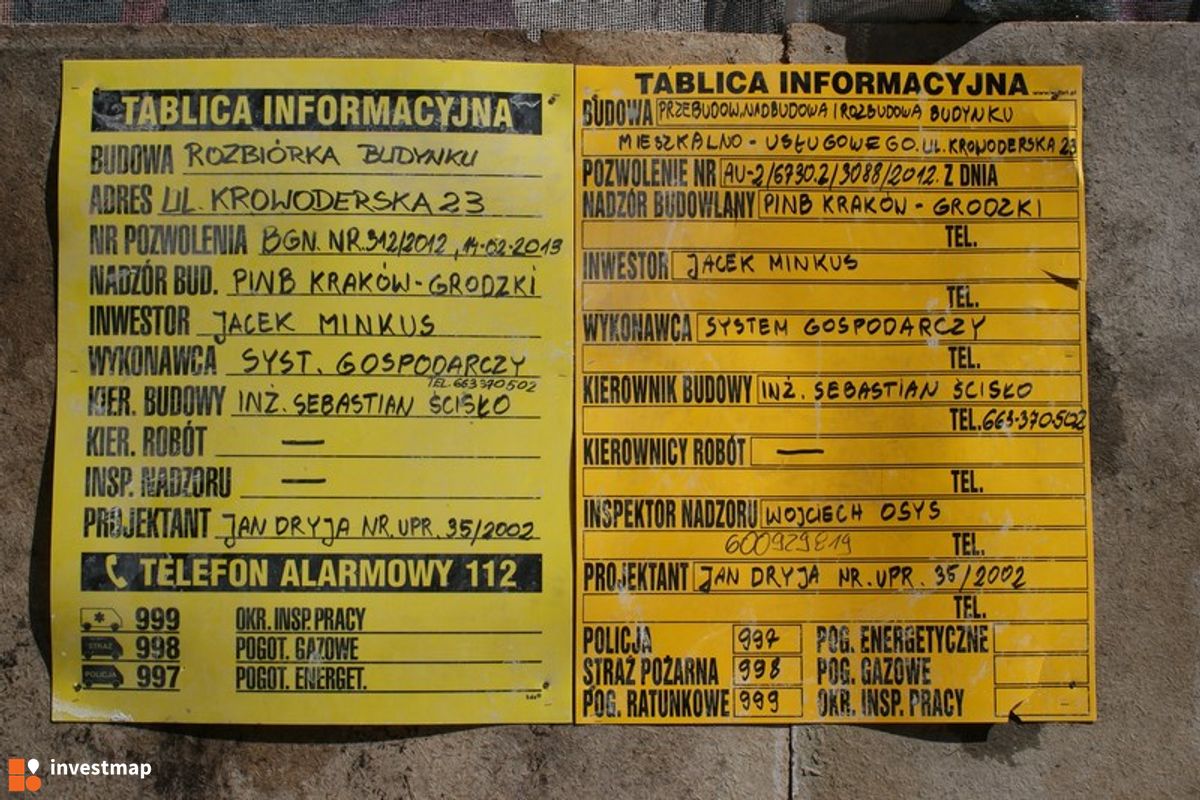 TABLICA INFORMACYJNA
BUDOWA ROZBIÓRKA BUDYNKU
ADRES UL. KROWODERSKA 23
NR POZWOLENIA BGN. NR. 312/2012, 14-02-2013
NADZÓR BUD. PINB KRAKÓW - GRODZKI
INWESTOR JACEK MINKUS
WYKONAWCA SYST. GOSPODARCZY
TEL. 663 370 502
KIER. BUDOWY INŻ. SEBASTIAN ŚCISŁO
KIER. ROBÓT —
INSP. NADZORU —
PROJEKTANT JAN DRYJA NR. UPR. 35/2002
TELEFON ALARMOWY 112
999 OKR. INSP. PRACY
STRAŻ 998 POGOT. GAZOWE
POLICJA 997 POGOT. ENERGET.
TABLICA INFORMACYJNA
BUDOWA PRZEBUDOW, NADBUDOWA I ROZBUDOWA BUDYNKU
MIESZKALNO - USŁUGOWEGO. UL. KROWODERSKA 23
POZWOLENIE NR AU-2/6730.2/3088/2012. Z DNIA
NADZÓR BUDOWLANY PINB KRAKÓW - GRODZKI
TEL.
INWESTOR JACEK MINKUS
TEL.
WYKONAWCA SYSTEM GOSPODARCZY
TEL.
KIEROWNIK BUDOWY INŻ. SEBASTIAN ŚCISŁO
TEL. 663-370-502
KIEROWNICY ROBÓT —
TEL.
INSPEKTOR NADZORU WOJCIECH OSYS
600929819 TEL.
PROJEKTANT JAN DRYJA NR. UPR. 35/2002
TEL.
POLICJA 997 POG. ENERGETYCZNE
STRAŻ POŻARNA 998 POG. GAZOWE
POG. RATUNKOWE 999 OKR. INSP. PRACY
investmap